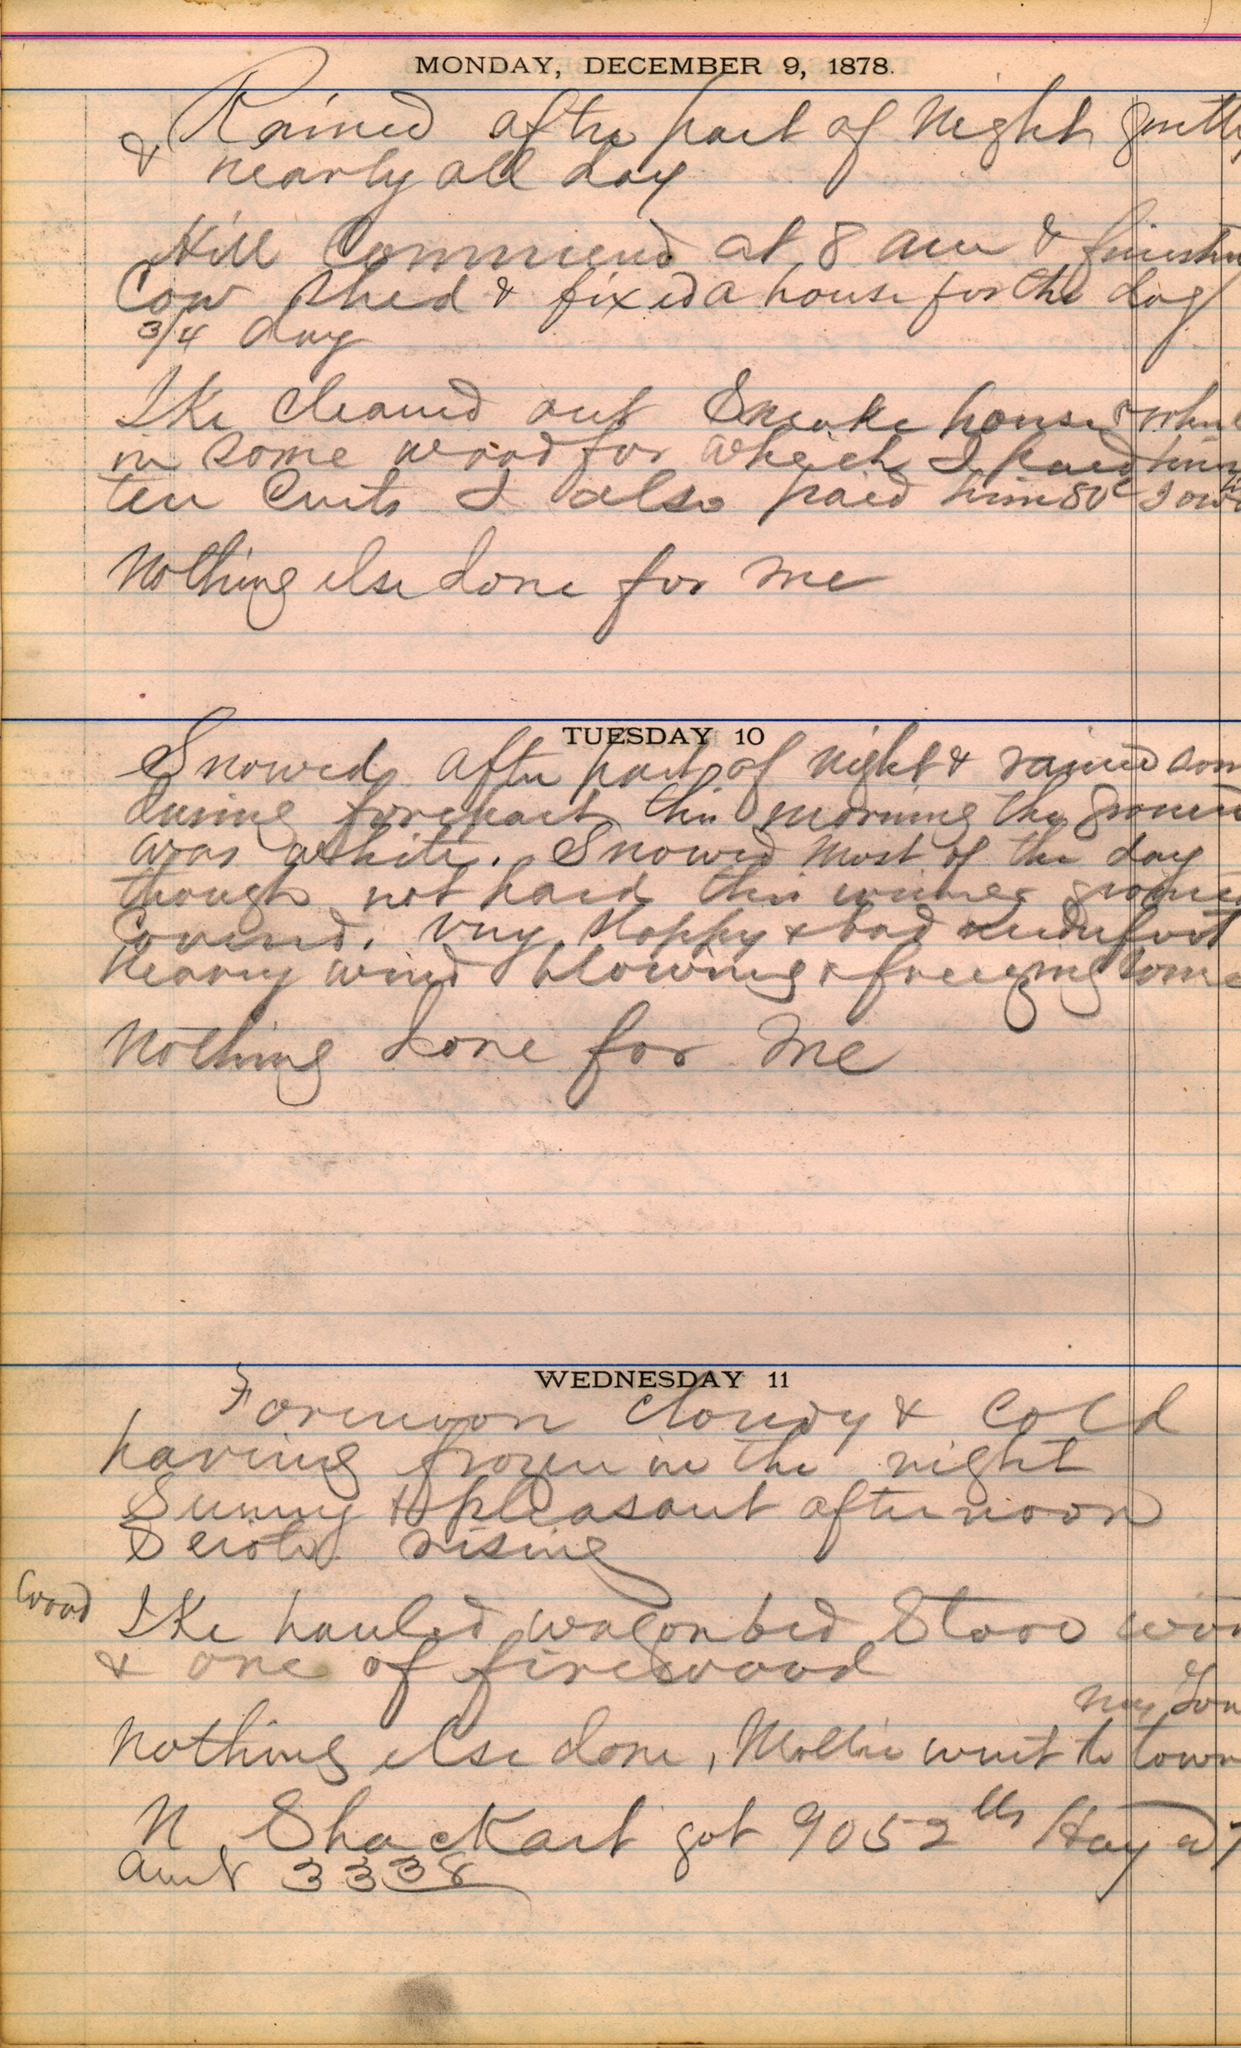 MONDAY, DECEMBER 9, 1878.
Rained after part of Night gently
& nearly all day
Hill Commencd at 8 am &
Cow shed & fixed a house for the dog
3/4 day
Ike cleaned out Smoke house &
in some wood for which I paid him
ten Cents I also paid him 50c I
Nothing else done for me
TUESDAY 10
Snowed after part of night & rained som
during forepart this morning the ground
was white. Snowed most of the day
though not hard this ground
Covered. Very Sloppy & bad underfoot
heavy wind blowing & freezing some
Nothing done for me
WEDNESDAY 11
Forenoon Cloudy & Cold
having frozen in the night
Sunny & pleasant afternoon
Scioto rising
Wood Ike hauled wagonbed Stove woo
& one of firewood
my
Nothing else done, Mollie went to town
N Shackart got 9052 lbs Hay at 7
amt 33 38